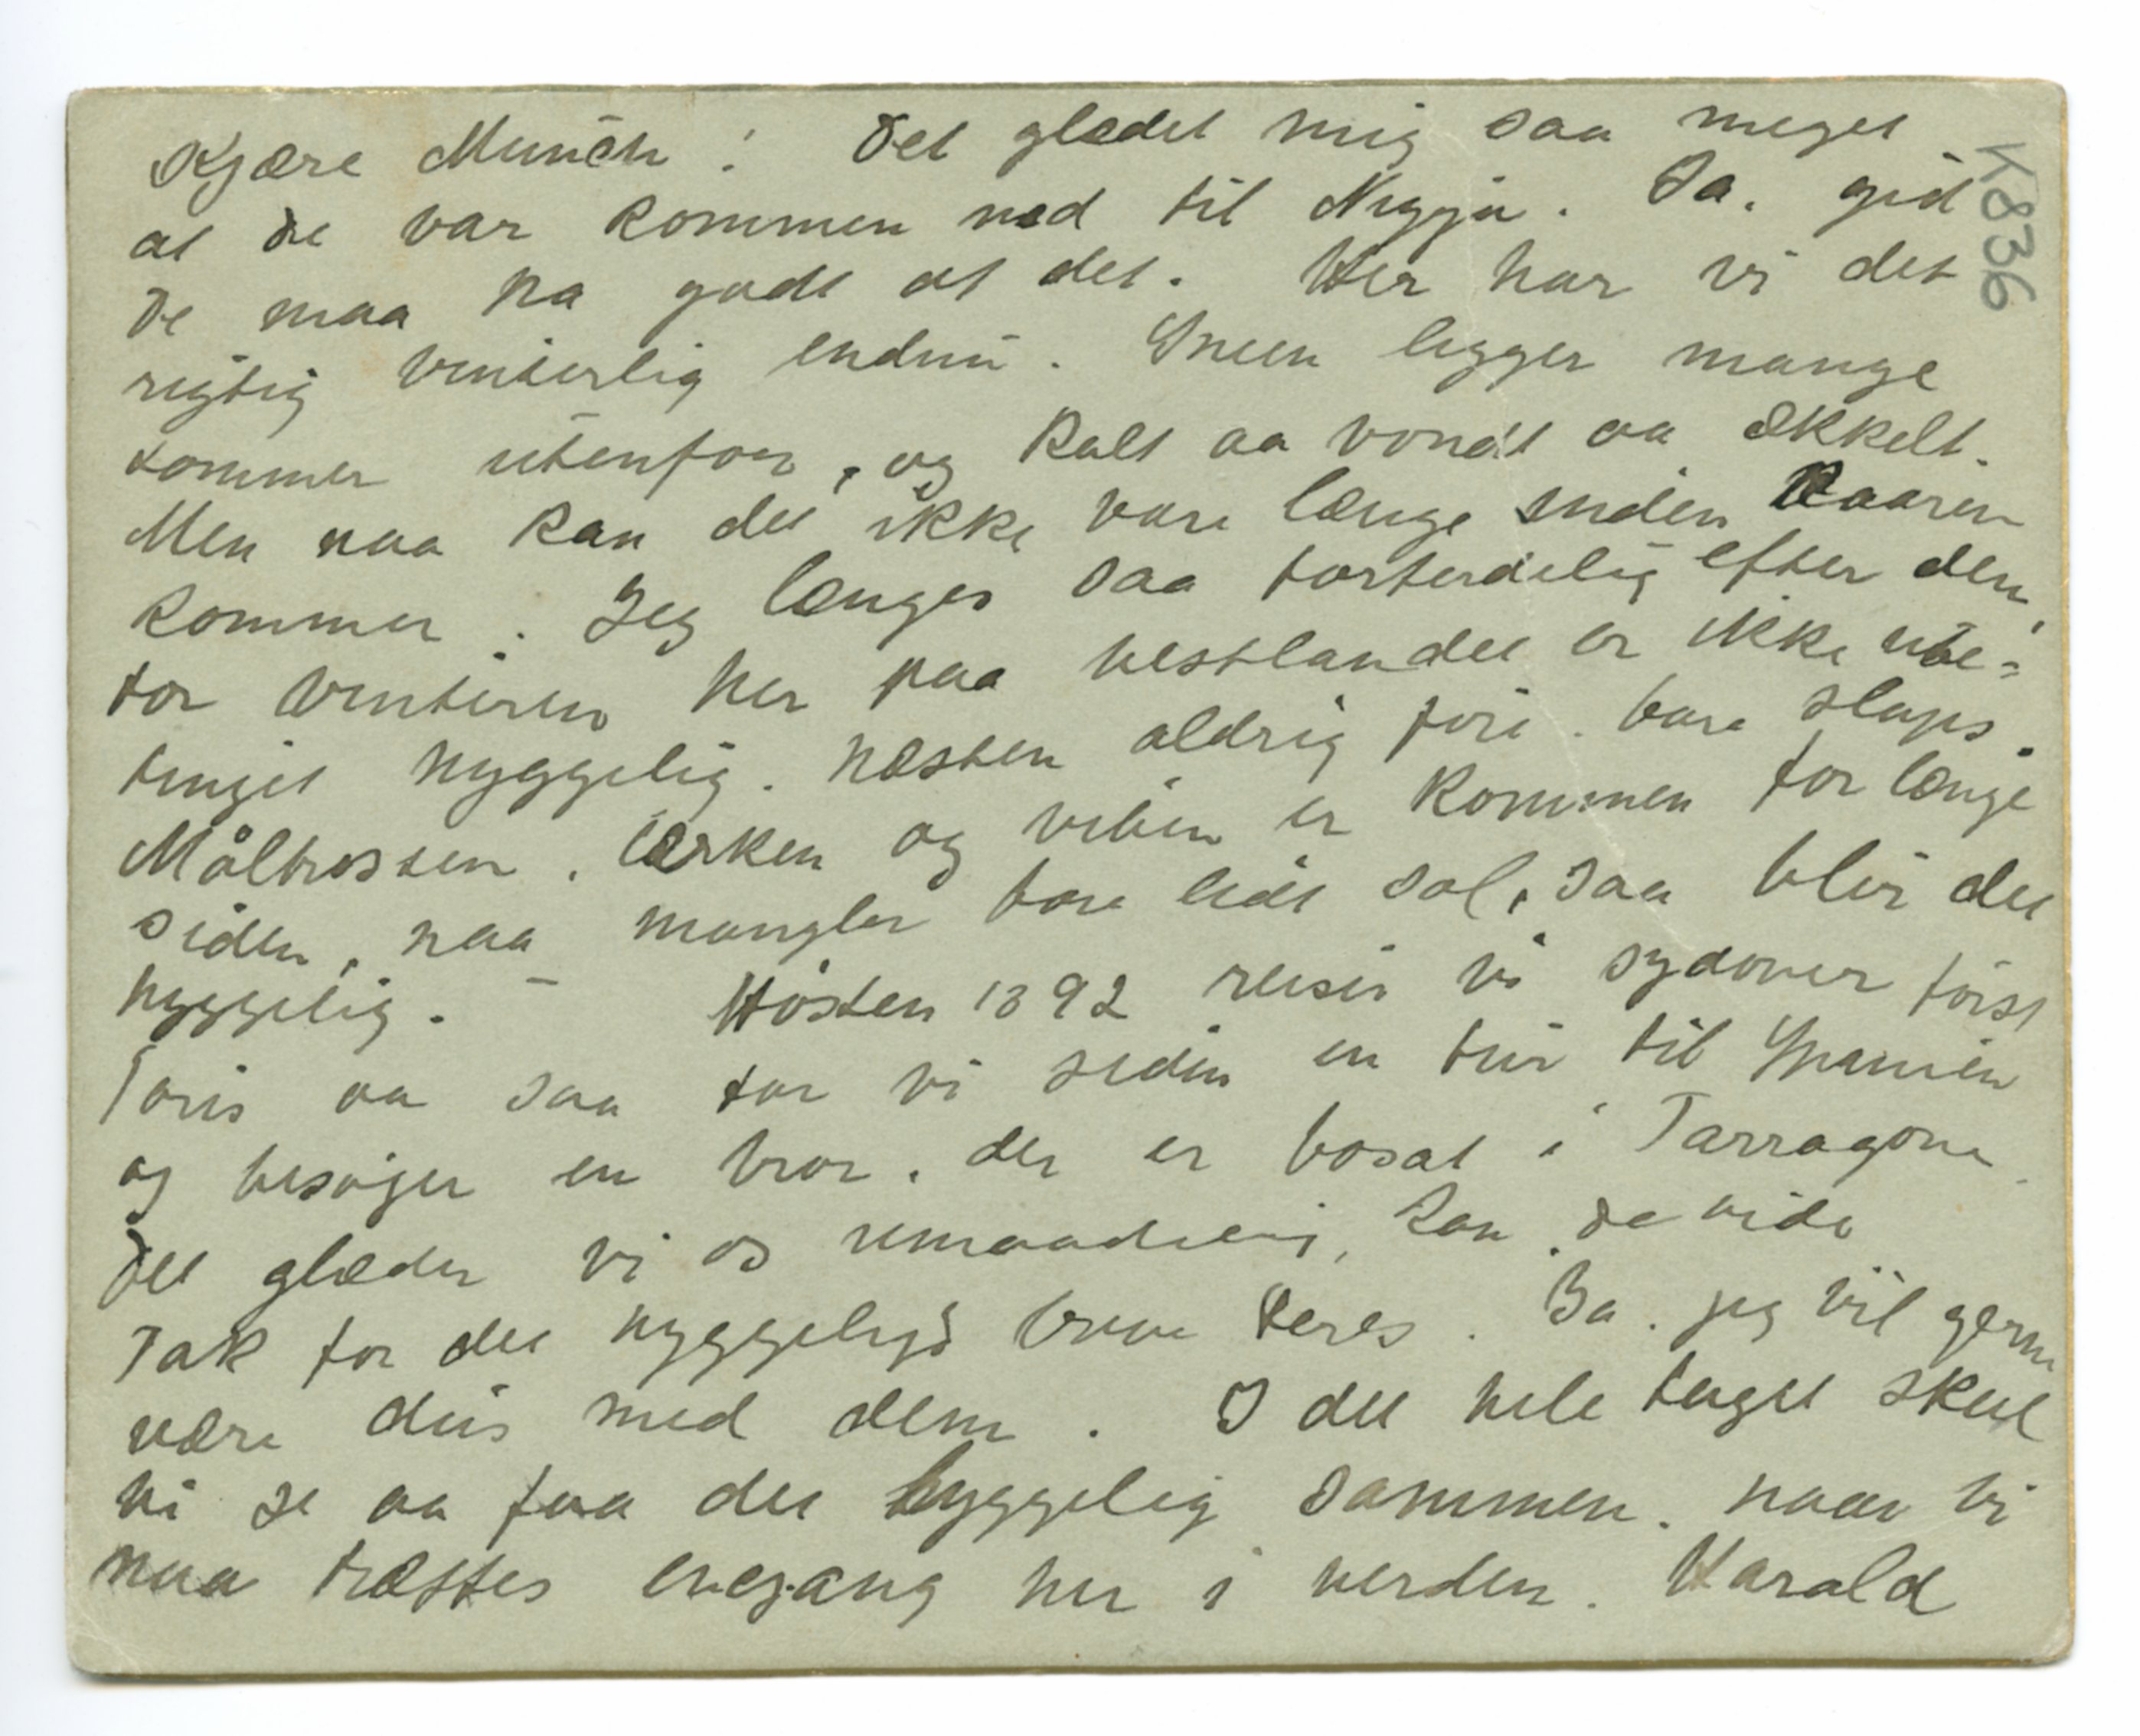 Kjære Munch! Det glædet mig saa meget
at De var kommen ned til Nizza. Ja, gid
De maa ha godt af det. Her har vi det
rigtig vinterlig endnu. Sneen ligger mange
tommer utenfor, og kalt aa vondt aa ækkelt.
Men naa kan det ikke vare længe inden Vaaren
kommer. Jeg længes saa forferdelig efter den,
for vinteren her paa vestlandet er ikke ube=
tinget hyggelig. næsten aldrig føre. bare slaps.
Måltrosten, lærken og viben er kommen for længe
siden, naa mangler bare lidt sol, saa blir det
hyggelig. – Høsten 1892 reiser vi sydover først
Paris aa saa tar vi siden en tur til Spanien
og besøger en bror, der er bosat i Tarragona
Det glæder vi os umaadelig, kan De vide
Tak for det hyggelige brev Deres. Ja. jeg vil gerne
være dus med dem. I det hele taget skal
vi se aa faa det hyggelig sammen. naar vi
naa træffes engang her i verden. Harald
K836